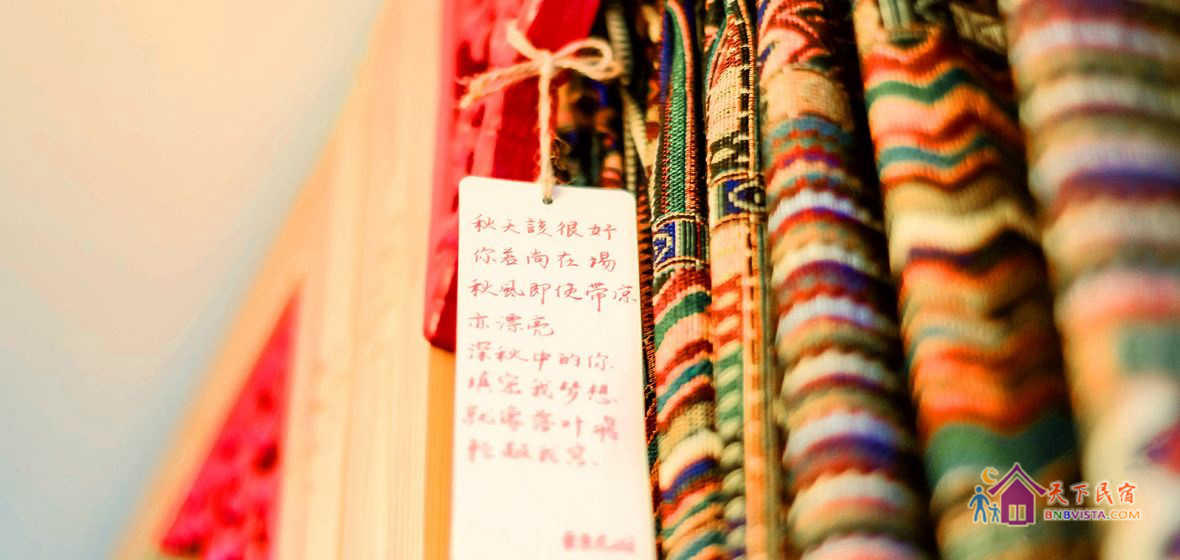 秋天該很好
你若尚在場
秋風即使带凉
亦漂亮
深秋中的你
填密我梦想
就像落叶飛
轻敲我窗.
天下民宿
BNBVISTA.COM